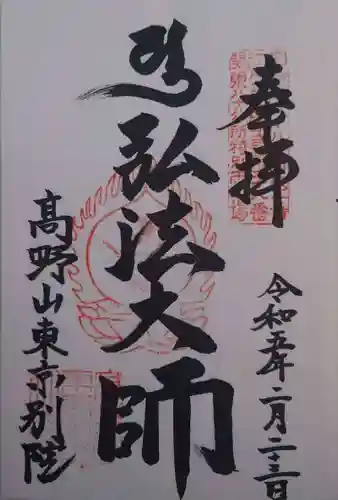 奉拝
令和五年二月二十三日
弘法大師
高野山東京別院